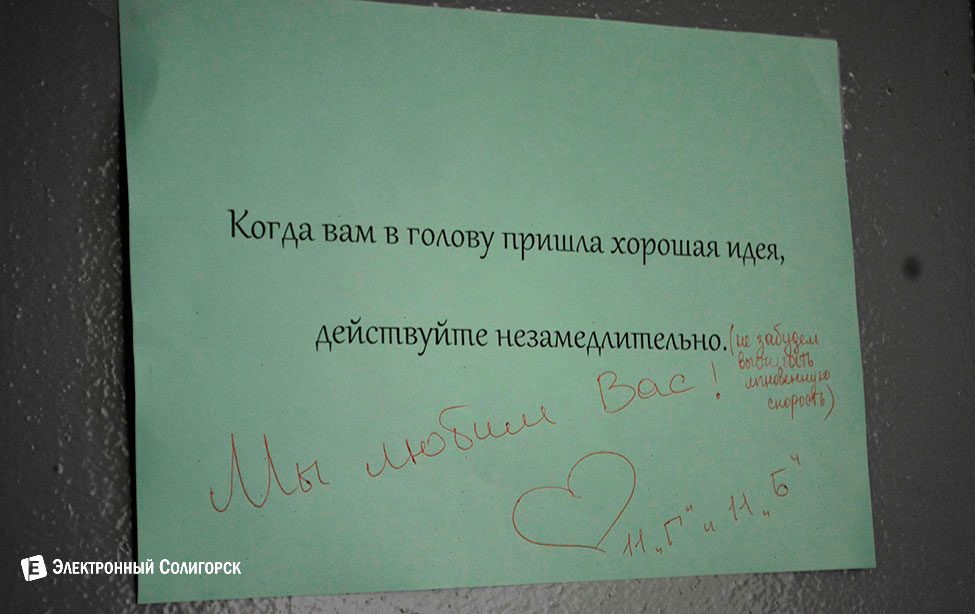 Когда вам в голову пришла хорошая идея,
действуйте незамедлительно.
(не забудем
вычислять
мгновенную
скорость)
Мы любим Вас!
11 „Г“ и 11 „Б“
Е Электронный Солигорск